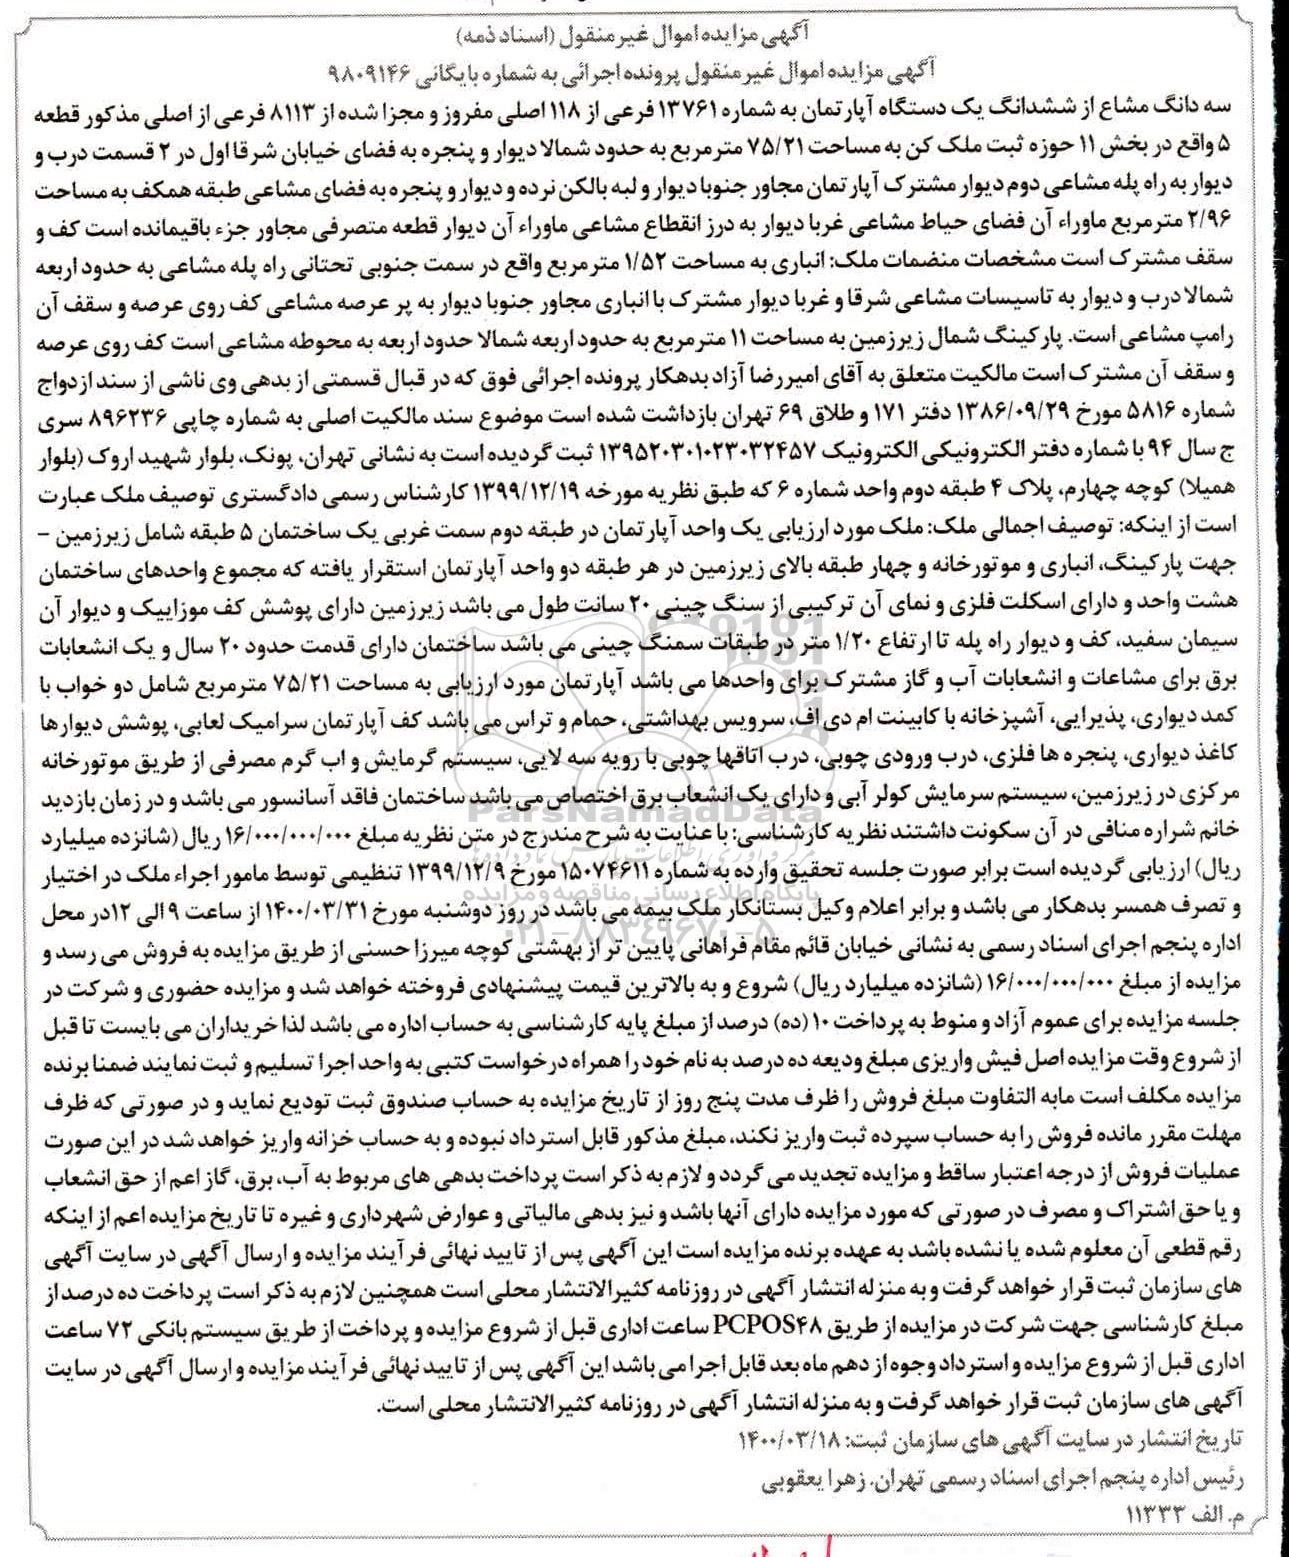 آگهی مزایده اموال غیر منقول (اسناد ذمه)
آگهی مزایده اموال غیر منقول پرونده اجرائی به شماره بایگانی ۹۸۰۹۱۴۶
سه دانگ مشاع از ششدانگ یک دستگاه آپارتمان به شماره ۱۳۷۶۱ فرعی از ۱۱۸ اصلی مفروز و مجزا شده از ۸۱۱۳ فرعی از اصلی مذکور قطعه
۵ واقع در بخش ۱۱ حوزه ثبت ملک کن به مساحت ۷۵/۲۱ مترمربع به حدود شمالا دیوار و پنجره به فضای خیابان شرقا اول در ۲ قسمت درب و
دیوار به راه پله مشاعی دوم دیوار مشترک آپارتمان مجاور جنوبا دیوار و لبه بالکن نرده و دیوار و پنجره به فضای مشاعی طبقه همکف به مساحت
۲/۹۶ مترمربع ماوراء آن فضای حیاط مشاعی غربا دیوار به درز انقطاع مشاعی ماوراء آن دیوار قطعه متصرفی مجاور جزء باقیمانده است کف و
سقف مشترک است مشخصات منضمات ملک: انباری به مساحت ۱/۵۲ مترمربع واقع در سمت جنوبی تحتانی راه پله مشاعی به حدود اربعه
شمالا درب و دیوار به تاسیسات مشاعی شرقا و غربا دیوار مشترک با انباری مجاور جنوبا دیوار به پر عرصه مشاعی کف روی عرصه و سقف آن
رامپ مشاعی است. پارکینگ شمال زیرزمین به مساحت ۱۱ مترمربع به حدود اربعه شمالا حدود اربعه به محوطه مشاعی است کف روی عرصه
و سقف آن مشترک است مالکیت متعلق به آقای امیررضا آزاد بدهکار پرونده اجرائی فوق که در قبال قسمتی از بدهی وی ناشی از سند ازدواج
شماره ۵۸۱۶ مورخ ۱۳۸۶/۰۹/۲۹ دفتر ۱۷۱ و طلاق ۶۹ تهران بازداشت شده است موضوع سند مالکیت اصلی به شماره چاپی ۸۹۶۲۳۶ سری
ج سال ۹۴ با شماره دفتر الکترونیکی الکترونیک ۱۳۹۵۲۰۳۰۱۰۲۳۰۳۲۴۵۷ ثبت گردیده است به نشانی تهران، پونک، بلوار شهید اروک (بلوار
همیلا) کوچه چهارم، پلاک ۴ طبقه دوم واحد شماره ۶ که طبق نظریه مورخه ۱۳۹۹/۱۲/۱۹ کارشناس رسمی دادگستری توصیف ملک عبارت
است از اینکه: توصیف اجمالی ملک: ملک مورد ارزیابی یک واحد آپارتمان در طبقه دوم سمت غربی یک ساختمان ۵ طبقه شامل زیرزمین –
جهت پارکینگ، انباری و موتورخانه و چهار طبقه بالای زیرزمین در هر طبقه دو واحد آپارتمان استقرار یافته که مجموع واحدهای ساختمان
هشت واحد و دارای اسکلت فلزی و نمای آن ترکیبی از سنگ چینی ۲۰ سانت طول می باشد زیرزمین دارای پوشش کف موزاییک و دیوار آن
سیمان سفید، کف و دیوار راه پله تا ارتفاع ۱/۲۰ متر در طبقات سمنگ چینی می باشد ساختمان دارای قدمت حدود ۲۰ سال و یک انشعابات
برق برای مشاعات و انشعابات آب و گاز مشترک برای واحدها می باشد آپارتمان مورد ارزیابی به مساحت ۷۵/۲۱ مترمربع شامل دو خواب با
کمد دیواری، پذیرایی، آشپزخانه با کابینت ام دی اف، سرویس بهداشتی، حمام و تراس می باشد کف آپارتمان سرامیک لعابی، پوشش دیوارها
کاغذ دیواری، پنجره ها فلزی، درب ورودی چوبی، درب اتاقها چوبی با رویه سه لایی، سیستم گرمایش و اب گرم مصرفی از طریق موتورخانه
مرکزی در زیرزمین، سیستم سرمایش کولر آبی و دارای یک انشعاب برق اختصاص می باشد ساختمان فاقد آسانسور می باشد و در زمان بازدید
خانم شراره منافی در آن سکونت داشتند نظریه کارشناسی: با عنایت به شرح مندرج در متن نظریه مبلغ ۱۶/۰۰۰/۰۰۰/۰۰۰ ریال (شانزده میلیارد
ریال) ارزیابی گردیده است برابر صورت جلسه تحقیق وارده به شماره ۱۵۰۷۴۶۱۱ مورخ ۱۳۹۹/۱۲/۹ تنظیمی توسط مامور اجراء ملک در اختیار
و تصرف همسر بدهکار می باشد و برابر اعلام وکیل بستانکار ملک بیمه می باشد در روز دوشنبه مورخ ۱۴۰۰/۰۳/۳۱ از ساعت ۹ الی ۱۲ در محل
اداره پنجم اجرای اسناد رسمی به نشانی خیابان قائم مقام فراهانی پایین تر از بهشتی کوچه میرزا حسنی از طریق مزایده به فروش می رسد و
مزایده از مبلغ ۱۶/۰۰۰/۰۰۰/۰۰۰ (شانزده میلیارد ریال) شروع و به بالاترین قیمت پیشنهادی فروخته خواهد شد و مزایده حضوری و شرکت در
جلسه مزایده برای عموم آزاد و منوط به پرداخت ۱۰ (ده) درصد از مبلغ پایه کارشناسی به حساب اداره می باشد لذا خریداران می بایست تا قبل
از شروع وقت مزایده اصل فیش واریزی مبلغ ودیعه ده درصد به نام خود را همراه درخواست کتبی به واحد اجرا تسلیم و ثبت نمایند ضمنا برنده
مزایده مکلف است مابه التفاوت مبلغ فروش را ظرف مدت پنج روز از تاریخ مزایده به حساب صندوق ثبت تودیع نماید و در صورتی که ظرف
مهلت مقرر مانده فروش را به حساب سپرده ثبت واریز نکند، مبلغ مذکور قابل استرداد نبوده و به حساب خزانه واریز خواهد شد در این صورت
عملیات فروش از درجه اعتبار ساقط و مزایده تجدید می گردد و لازم به ذکر است پرداخت بدهی های مربوط به آب، برق، گاز اعم از حق انشعاب
و یا حق اشتراک و مصرف در صورتی که مورد مزایده دارای آنها باشد و نیز بدهی مالیاتی و عوارض شهرداری و غیره تا تاریخ مزایده اعم از اینکه
رقم قطعی آن معلوم شده یا نشده باشد به عهده برنده مزایده است این آگهی پس از تایید نهائی فرآیند مزایده و ارسال آگهی در سایت آگهی
های سازمان ثبت قرار خواهد گرفت و به منزله انتشار آگهی در روزنامه کثیرالانتشار محلی است همچنین لازم به ذکر است پرداخت ده درصد از
مبلغ کارشناسی جهت شرکت در مزایده از طریق PCPOS۴۸ ساعت اداری قبل از شروع مزایده و پرداخت از طریق سیستم بانکی ۷۲ ساعت
اداری قبل از شروع مزایده و استرداد وجوه از دهم ماه بعد قابل اجرا می باشد این آگهی پس از تایید نهائی فرآیند مزایده و ارسال آگهی در سایت
آگهی های سازمان ثبت قرار خواهد گرفت و به منزله انتشار آگهی در روزنامه کثیرالانتشار محلی است.
تاریخ انتشار در سایت آگهی های سازمان ثبت: ۱۴۰۰/۰۳/۱۸
رئیس اداره پنجم اجرای اسناد رسمی تهران. زهرا یعقوبی
م. الف ۱۱۳۳۳
ParsNamadData
پایگاه اطلاع رسانی مناقصه و مزایده
۰۲۱-۸۸۳۴۹۶۷۰-۵